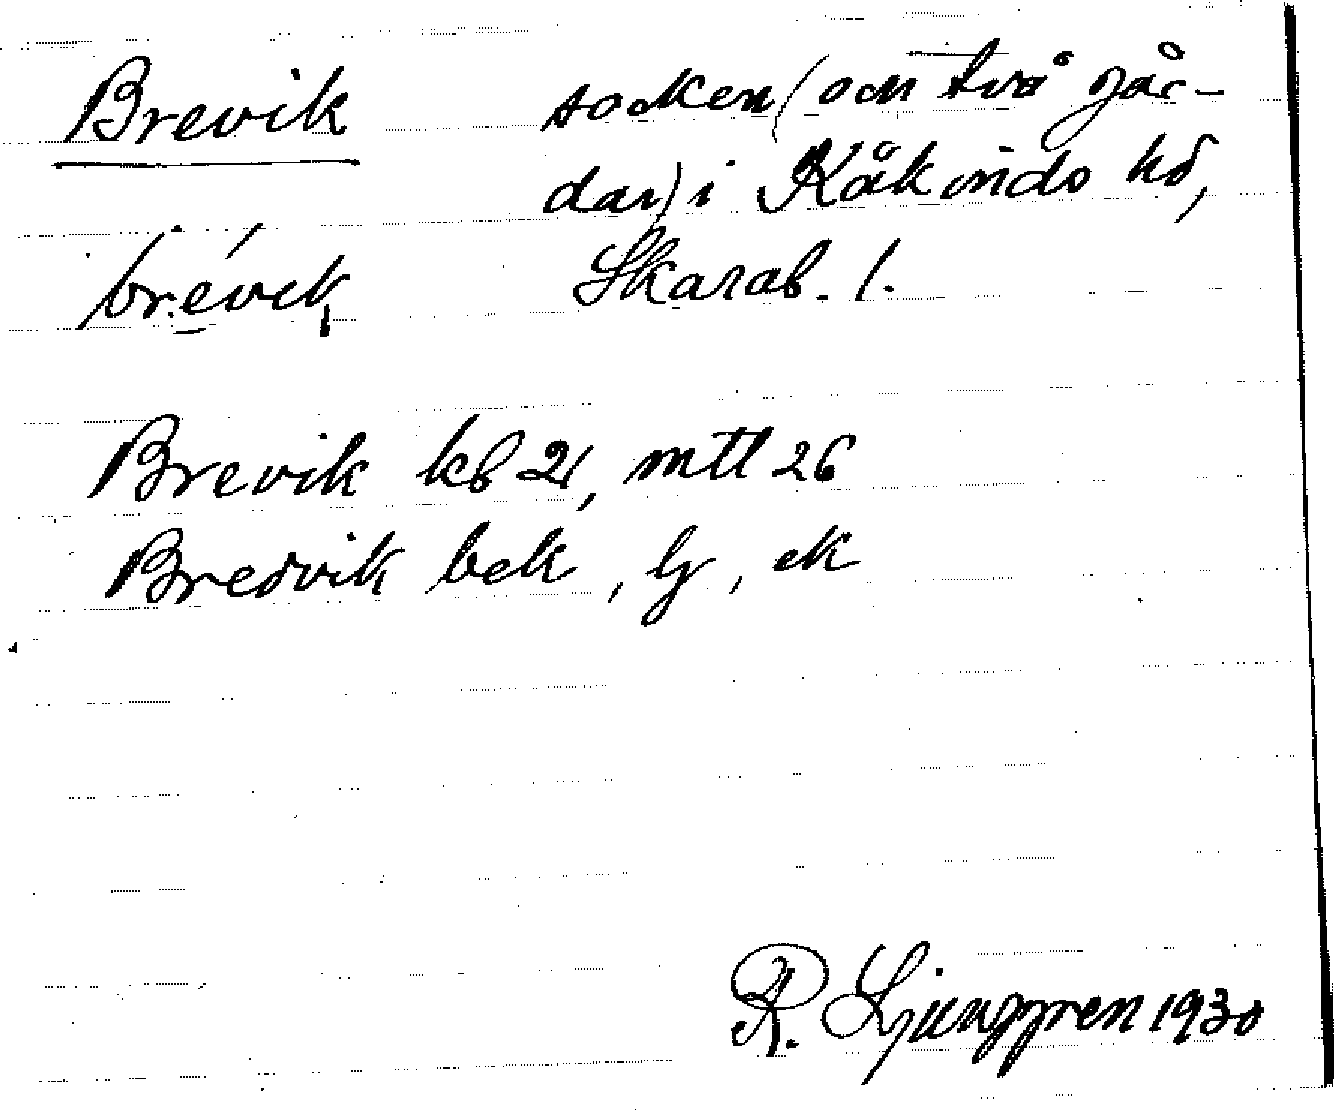 Brevik socken (och två går-
dar) i Kåkinds hd,
brévik Skarab. l.
Brevik kb 21, mtl 26
Bredvik bek, lj, ek
R. Ljunggren 1930